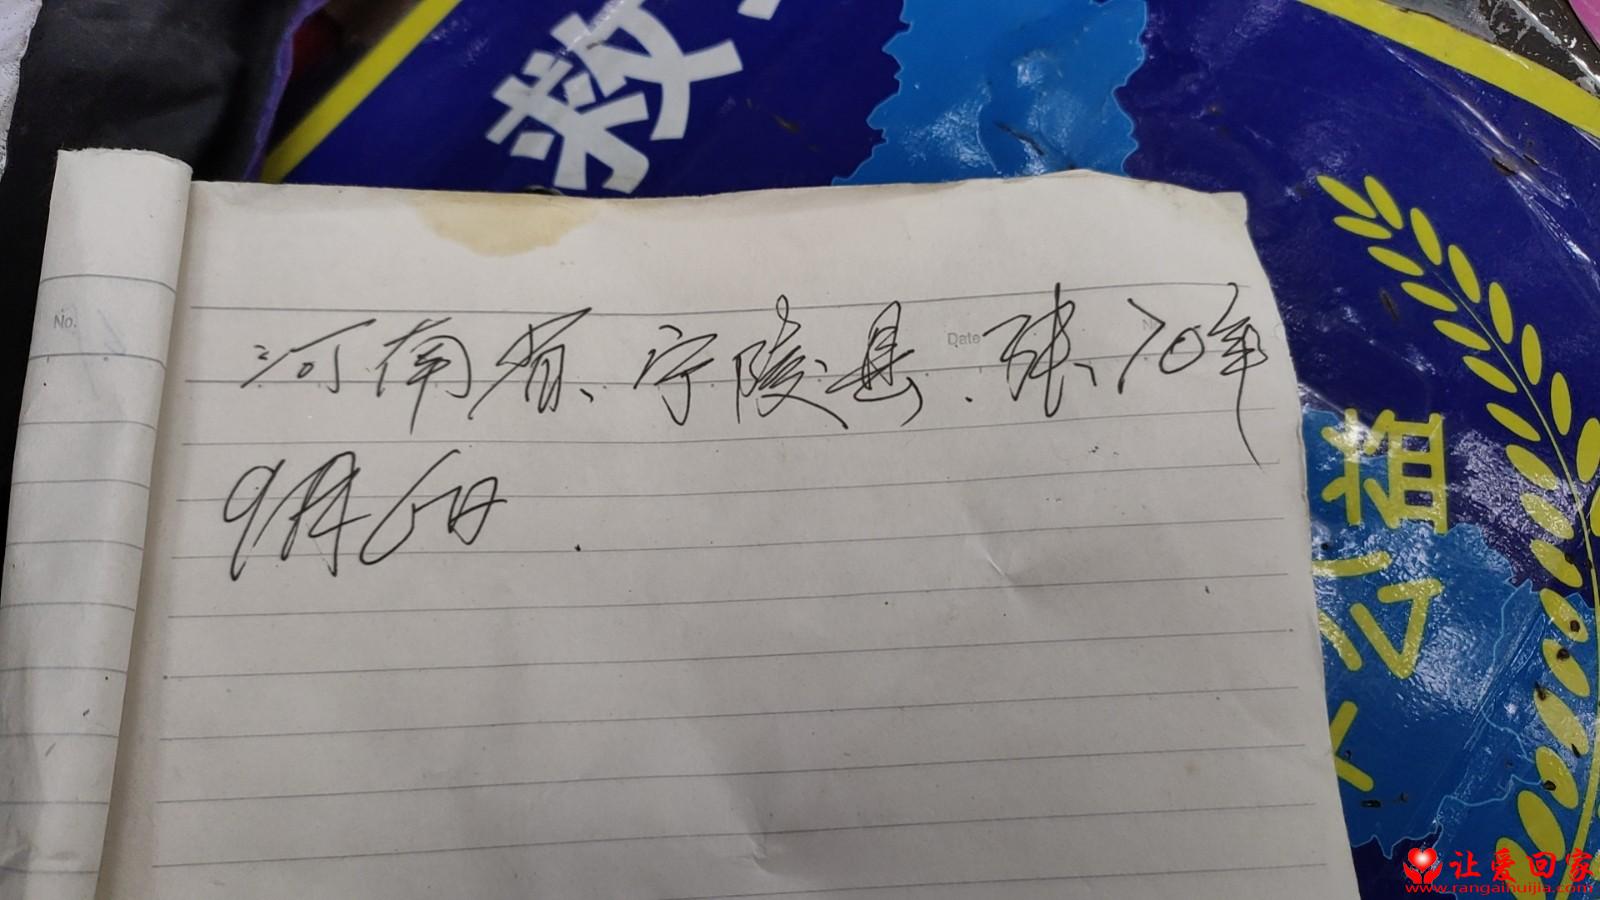 救
No.
Date
河南省、宁陵县.张、70年
9月6日.
公益
让爱回家
www.rangaihuijia.com